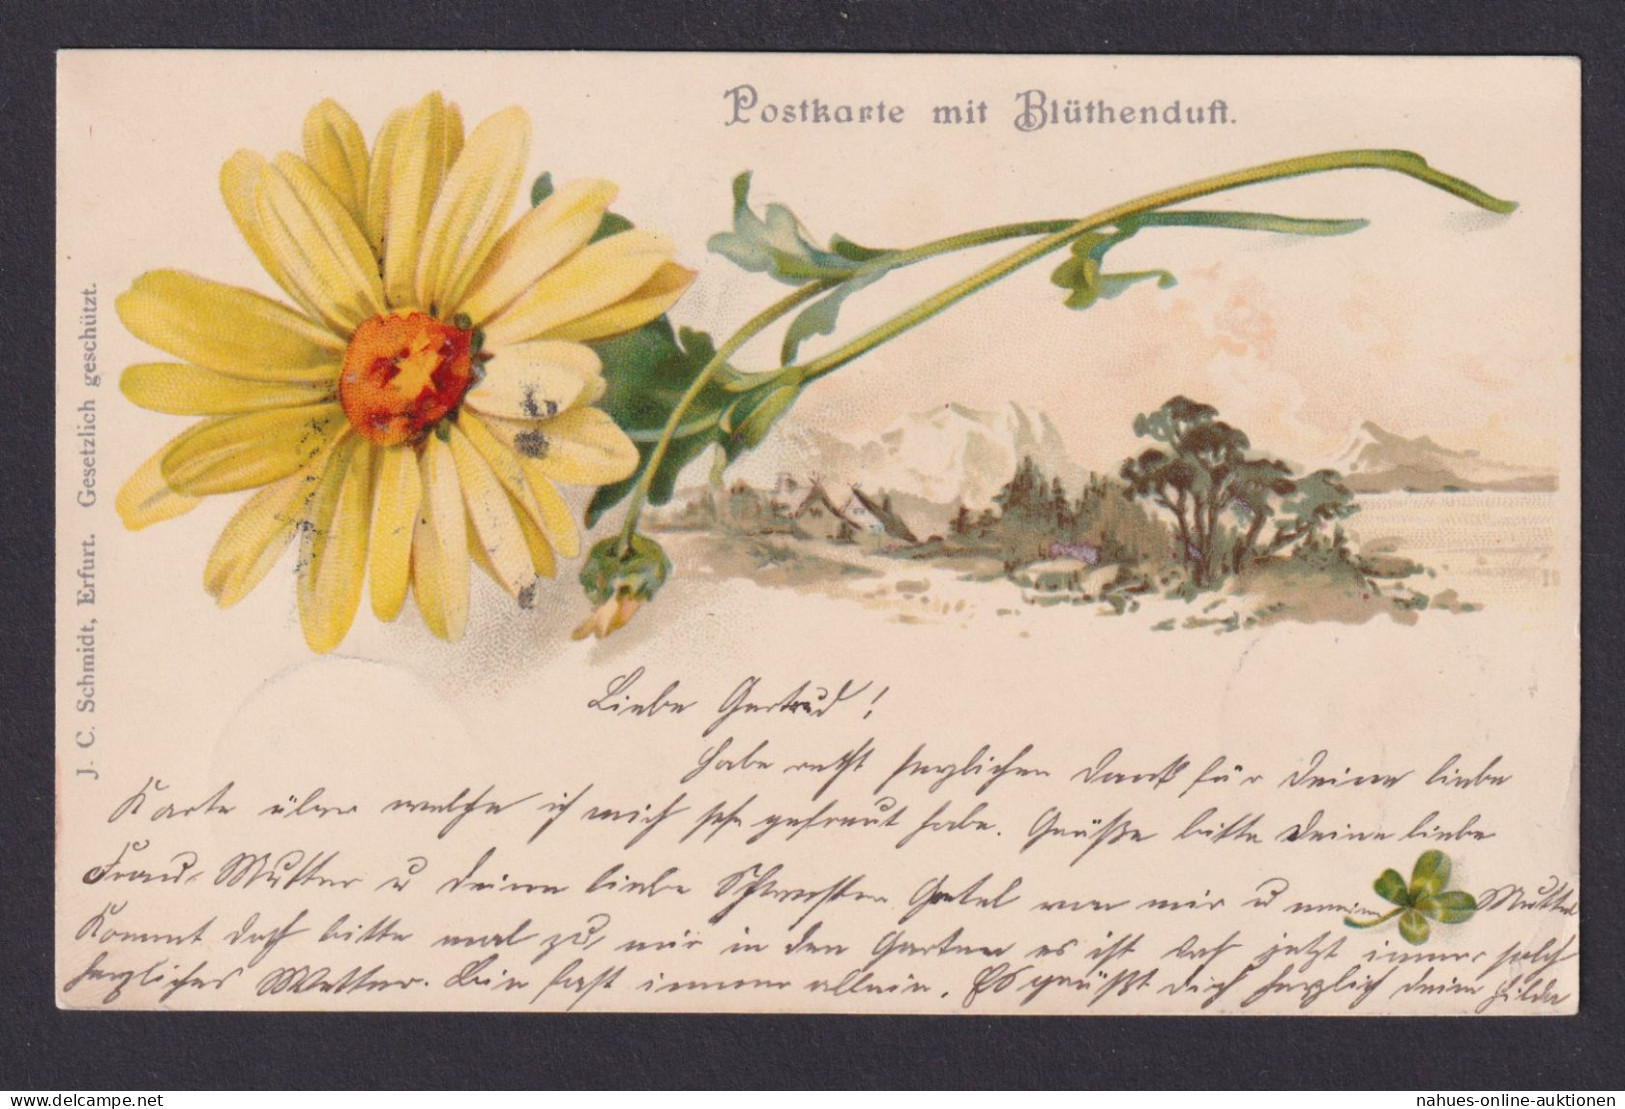 Postkarte mit Blüthenduft.
J. C. Schmidt, Erfurt. Gesetzlich geschützt.
Liebe Gertrud!
habe recht herzlichen Dank für Deine liebe
Karte über welche ich mich sehr gefreut habe. Grüße bitte Deine liebe
Frau Mutter u Deine liebe Schwester Gretel von mir u meine Mutter
Kommt doch bitte mal zu mir in den Garten es ist doch jetzt immer solch
herzliches Wetter. Bin fast immer allein. Es grüßt Dich herzlich Deine Hilda
nahues-online-auktionen